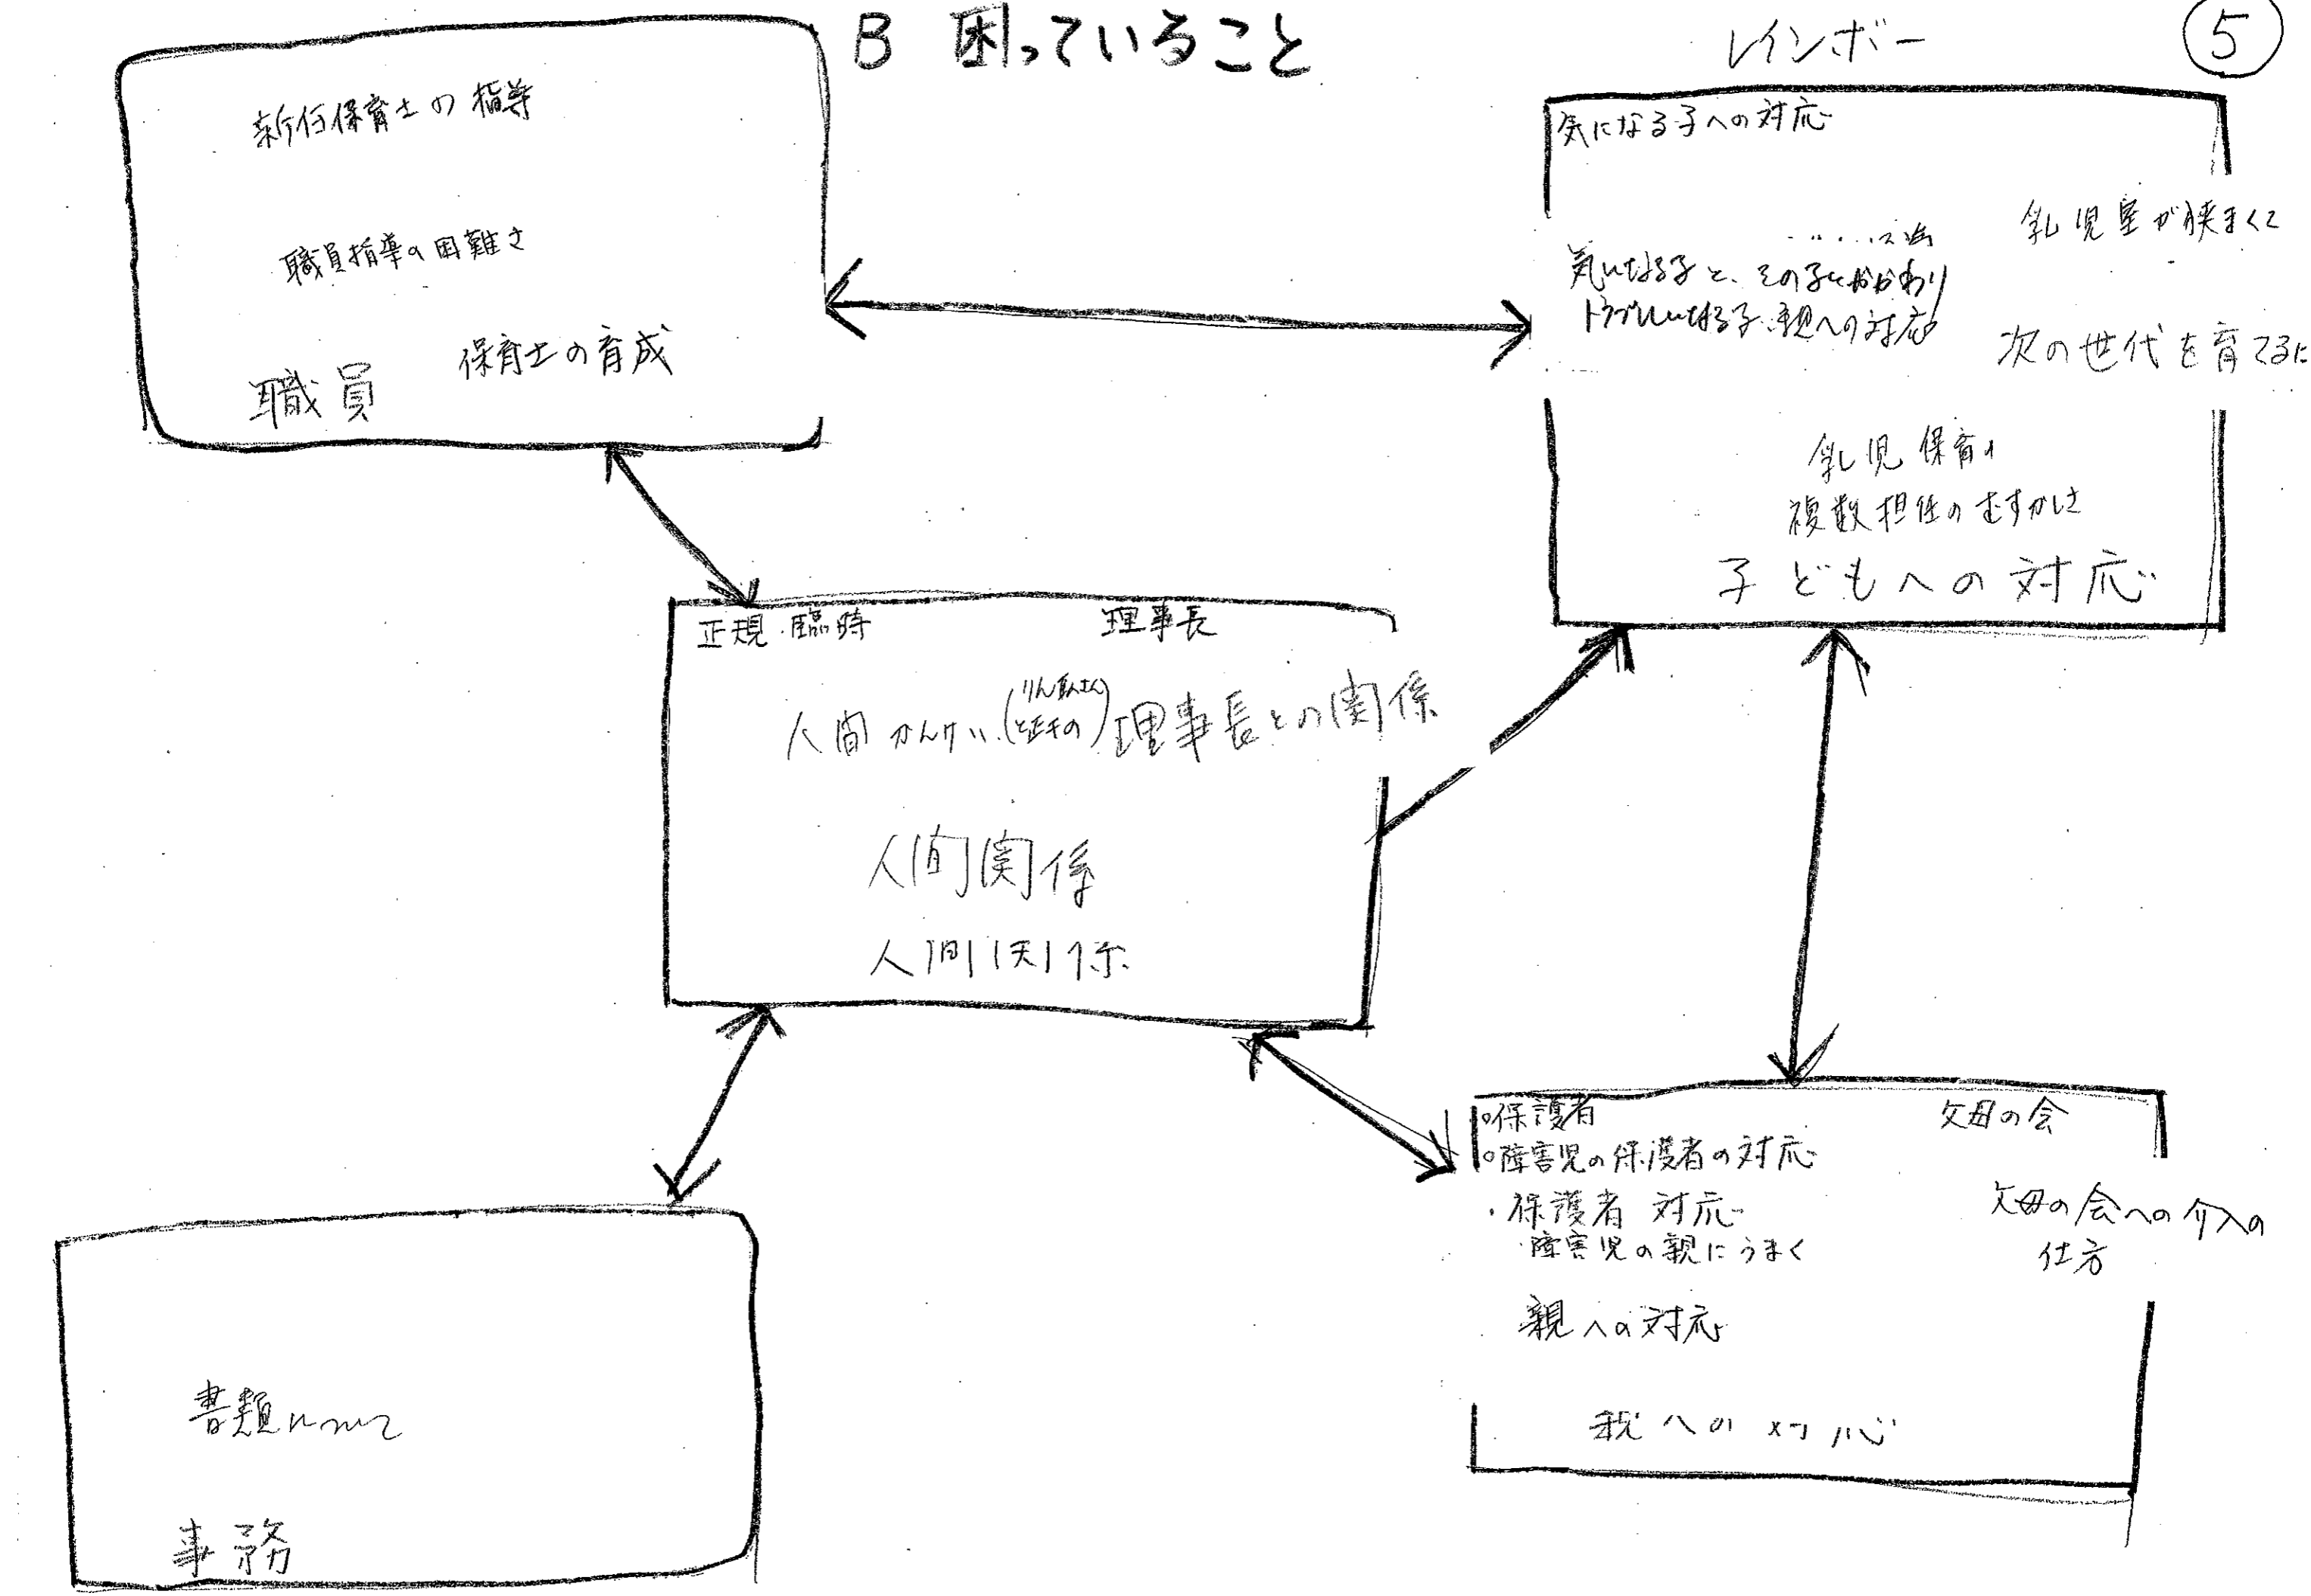 B 困っていること
レインボー
⑤
新任保育士の指導
職員指導の困難さ
保育士の育成
職員
気になる子への対応
乳児室が狭まくて
気になる子と、その子にかかわり
トラブルになる子、親への対応
次の世代を育てるに
乳児保育の
複数担任のむずかしさ
子どもへの対応
正規・臨時
理事長
人間かんけい
理事長との関係
人間関係
人間関係
○保護者
父母の会
○障害児の保護者の対応
・保護者 対応
・障害児の親にうまく
父母の会への介入の
仕方
親への対応
親への対応
書類について
事務